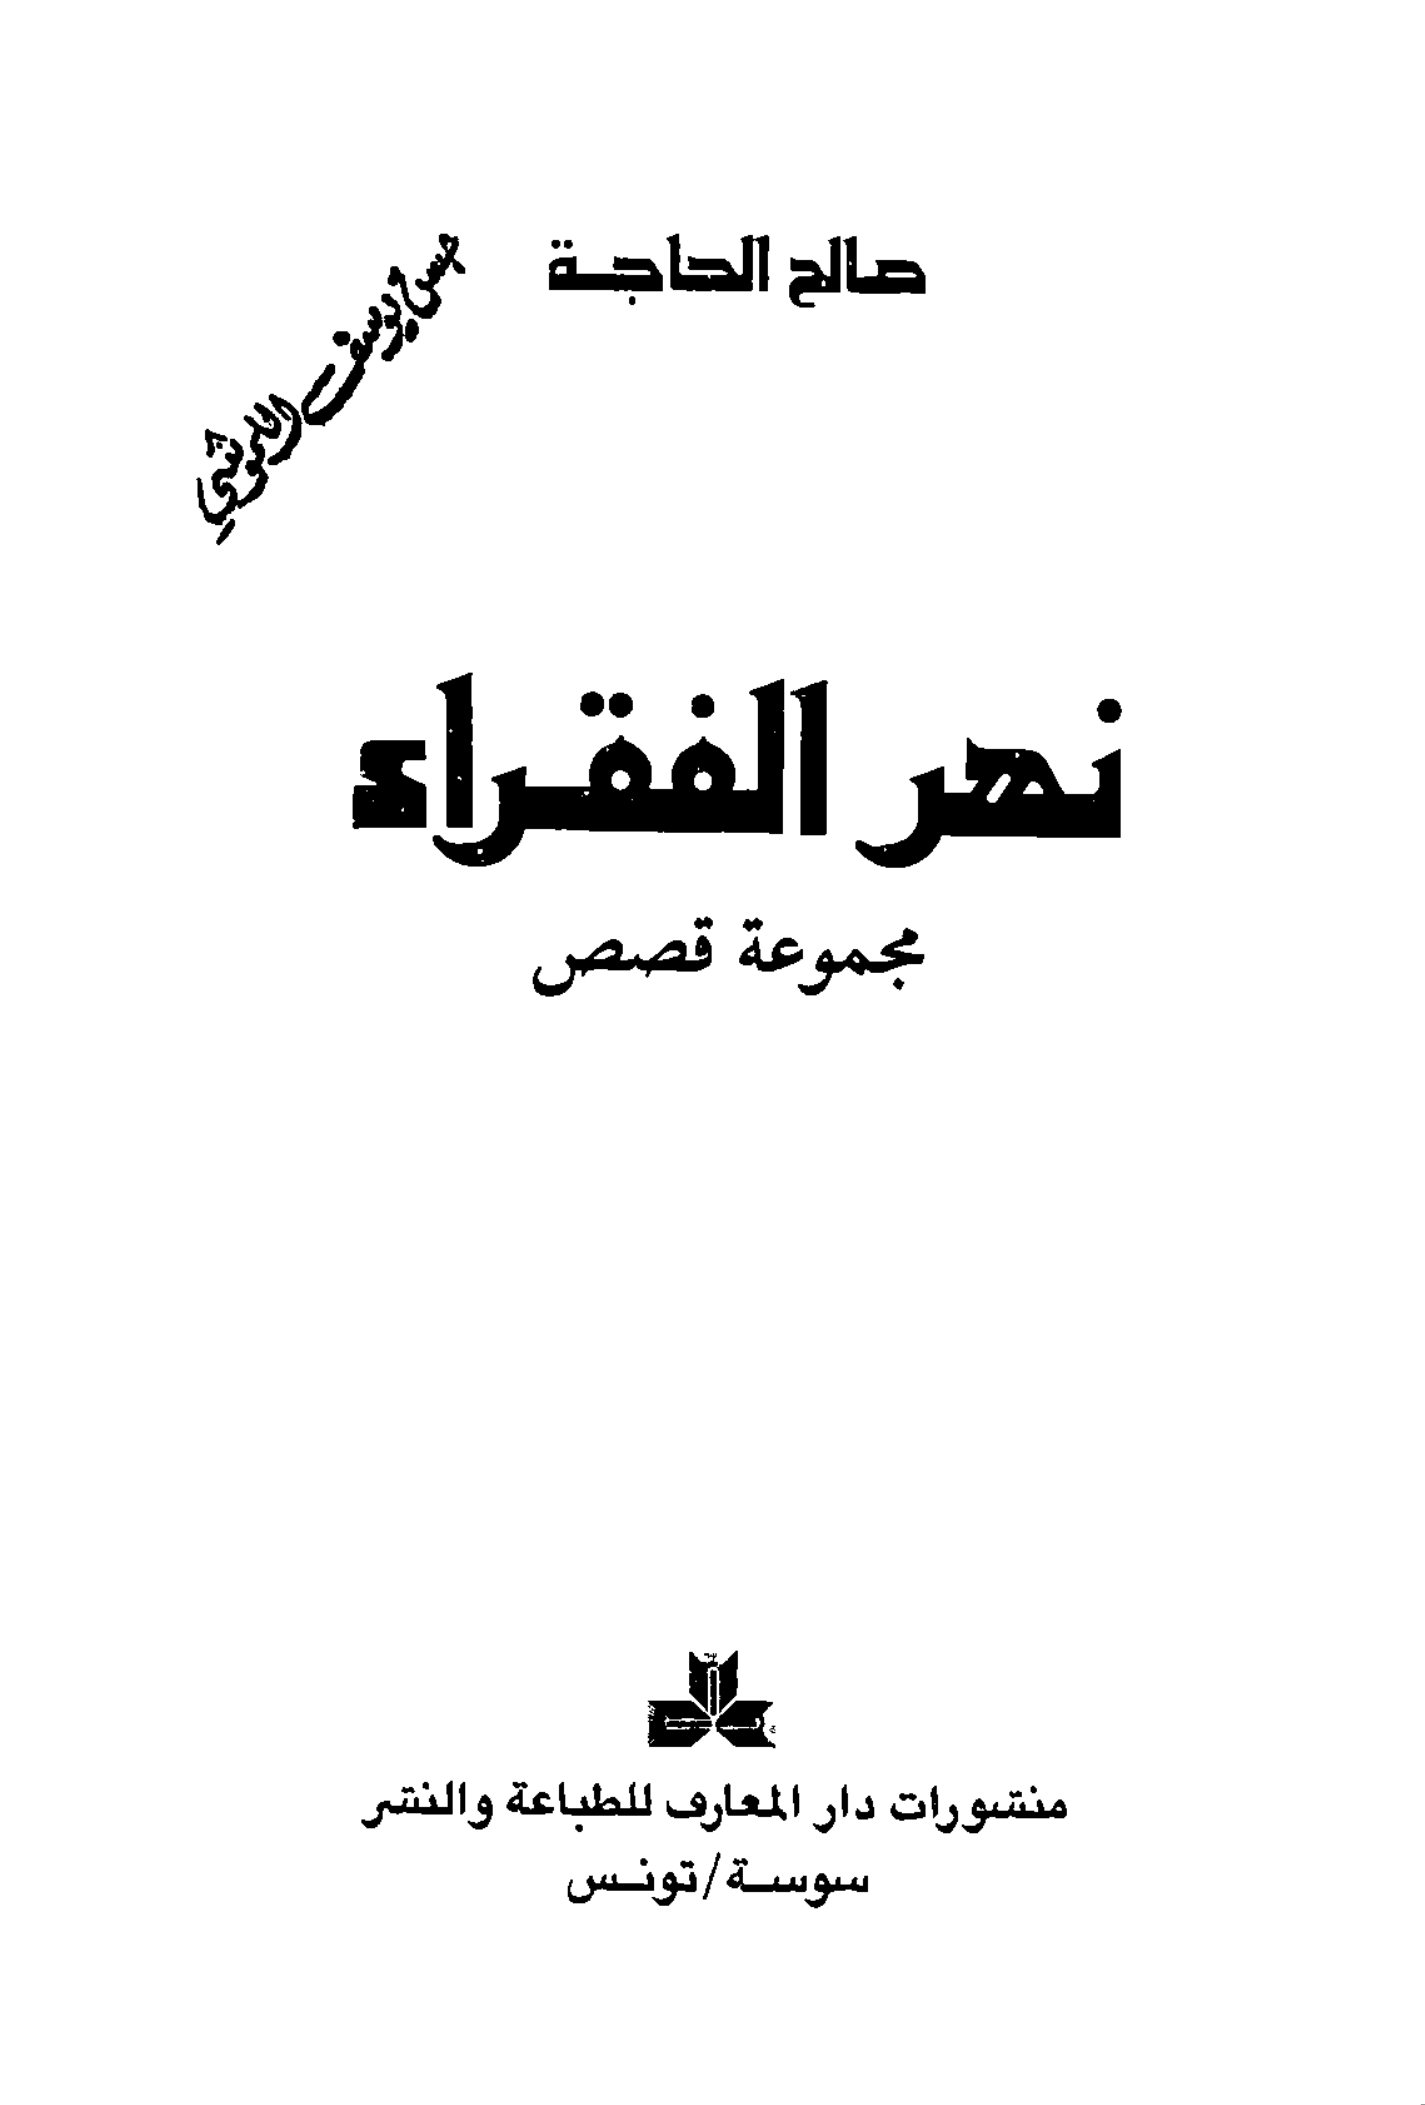 صالح الحاجة
يوسف
نهر الفقراء
مجموعة قصص
منشورات دار المعارف للطباعة والنشر
سوسة/تونس